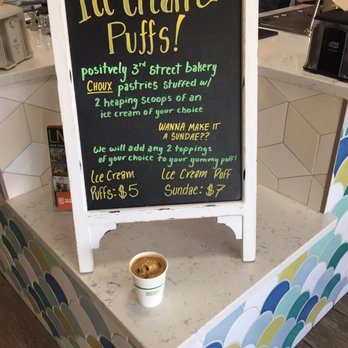 Ice Cream
Puffs!
positvely 3rd street bakery
CHOUX pastries stuffed w/
2 heaping scoops of an
ice cream of your choice
WANNA MAKE IT
A SUNDAE??
We will add any 2 toppings
of your choice to your yummy puff!
Ice Cream
Puffs: $5
Ice Cream Puff
Sundae: $7